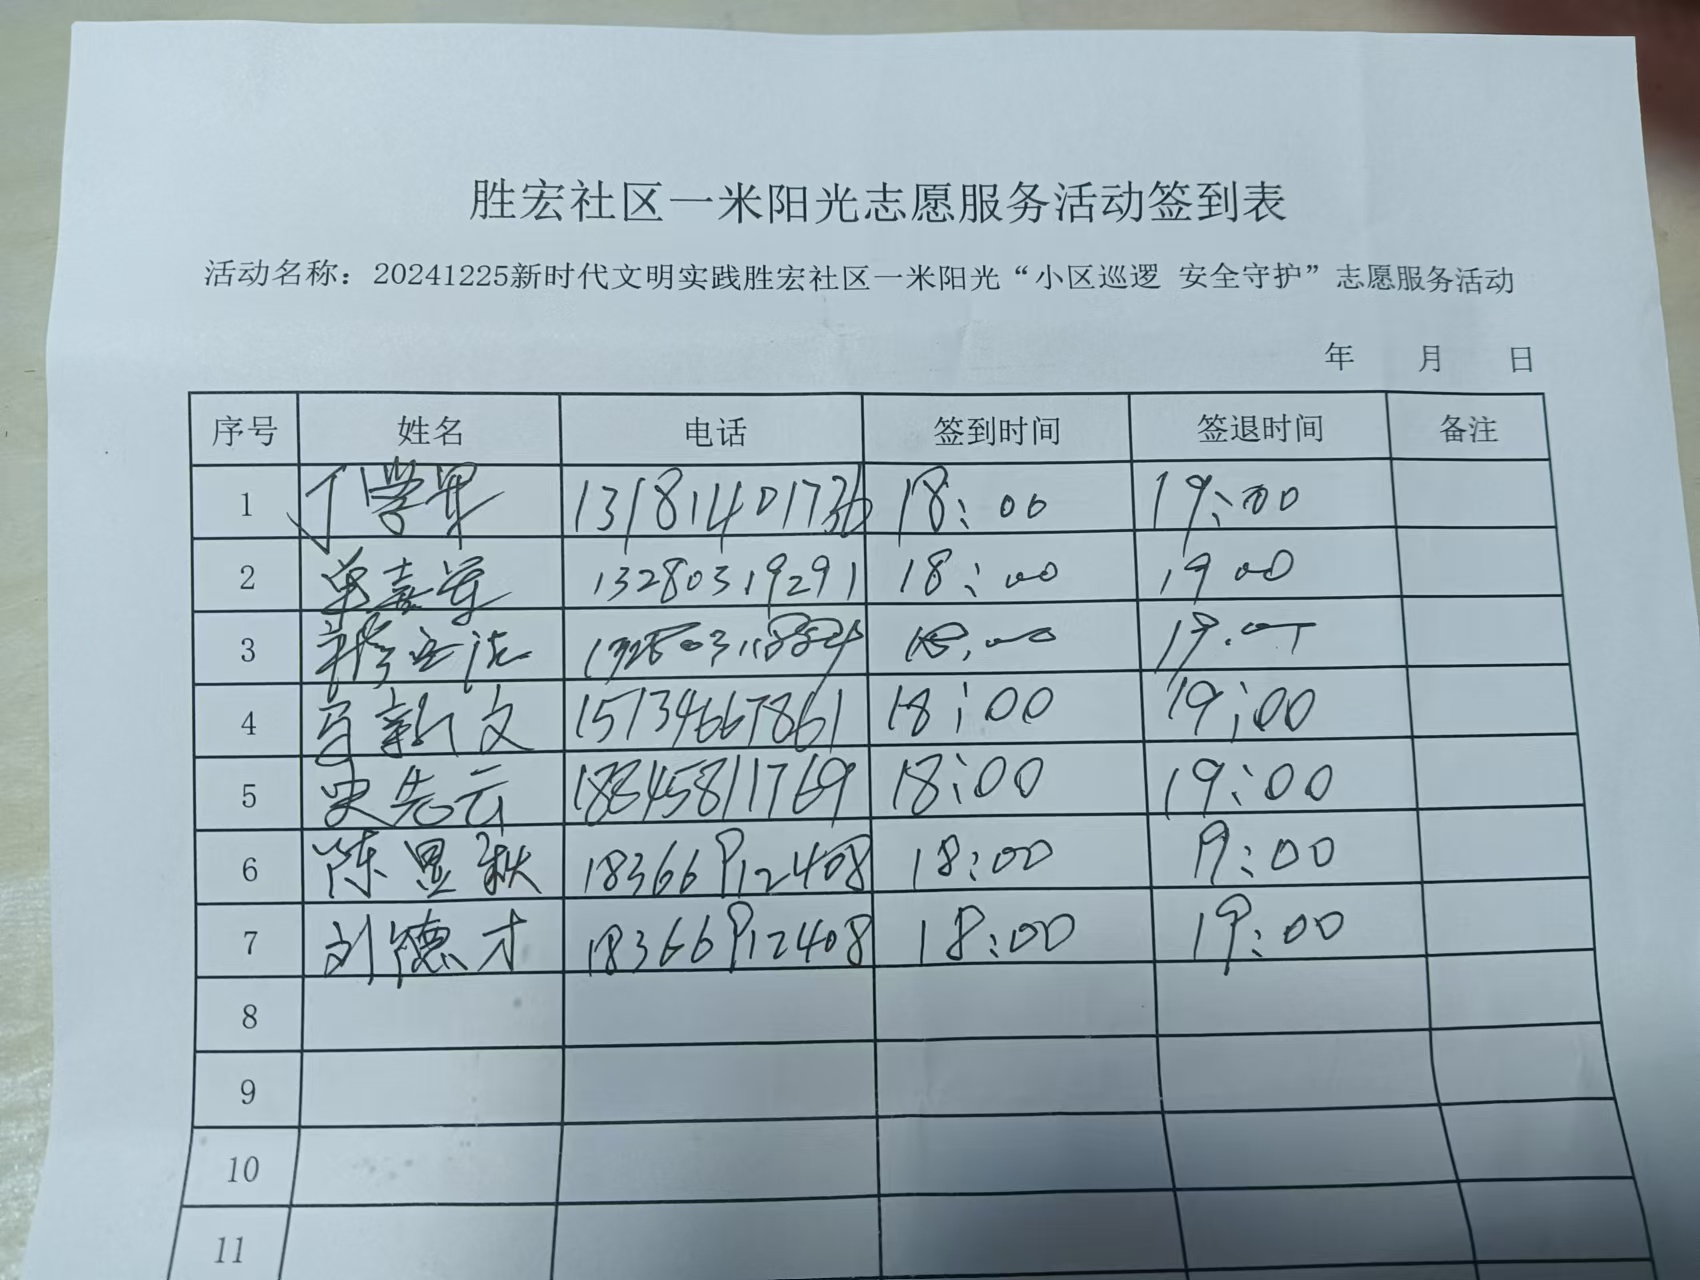 胜宏社区一米阳光志愿服务活动签到表
活动名称：20241225新时代文明实践胜宏社区一米阳光“小区巡逻 安全守护”志愿服务活动
年 月 日
序号 姓名 电话 签到时间 签退时间 备注
1 丁学军 13181401736 18:00 19:00
2 单嘉军 13280319291 18:00 19 00
3 18:00 19:00
4 马新文 15134667861 18:00 19:00
5 史先云 18845811769 18:00 19:00
6 陈显秋 18366912408 18:00 19:00
7 刘德才 18366912408 18:00 19:00
8
9
10
11